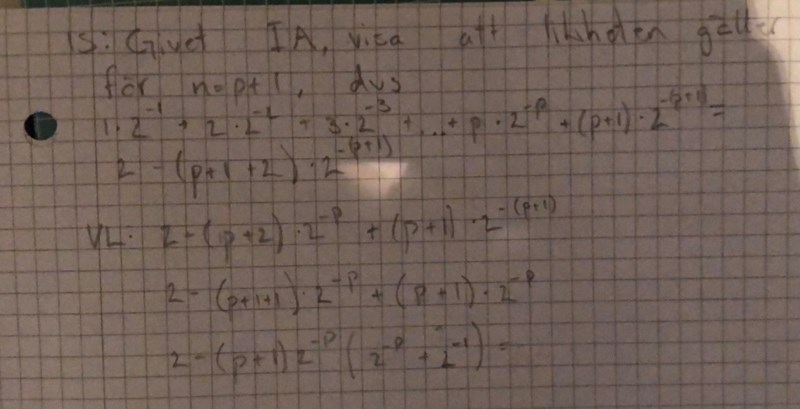 IS: Givet IA, visa att likheten gäller
för n=p+1, dvs
1·2^-1 + 2·2^-2 + 3·2^-3 + ... + p·2^-p + (p+1)·2^-(p+1) =
2 - (p+1+2)·2^-(p+1)
VL: 2-(p+2)·2^-p + (p+1)·2^-(p+1)
2 - (p+1+1)·2^-p + (p+1)·2^-p
2 - (p+1)2^-p (2^-p + 2^-1) =